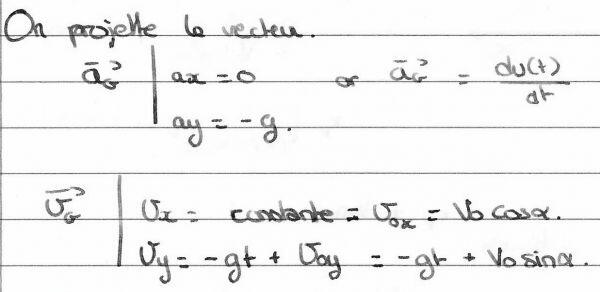 On projette le vecteur.
a⃗_G | ax = 0 or a⃗_G = dv(t)/dt
ay = -g.
v⃗_G | Vx = constante = V₀x = V₀ cosα.
Vy = -gt + V₀y = -gt + V₀ sinα.